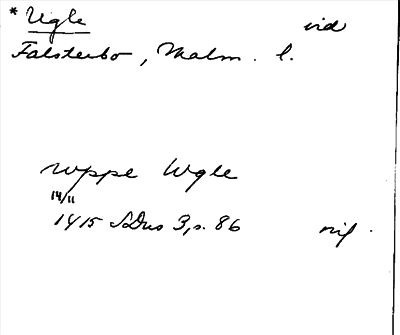 * Ugle vid
Falsterbo, Malm. l.
uppe Wgle
14/11
1415 SDns 3, s. 86 nif.